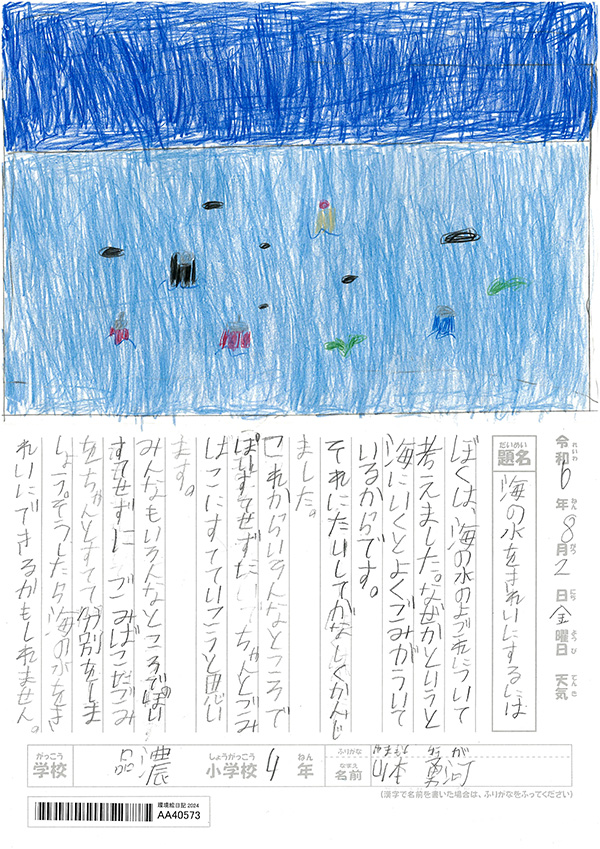 令和6年8月2日金曜日 天気
れいわ ねん がつ にち ようび てんき
だいめい
題名
海の水をきれいにするには
ぼくは、海の水のよごれについて
考えました。なぜかというと
海にいくとよくごみがういて
いるからです。
それにたいしてかなしくかんじ
ました。
これからいろんなところで
ぽいすてせずにちゃんとごみ
ばこにすてていこうと思い
ます。
みんなもいろんなところでぽい
すてせずにごみばこだごみ
をちゃんとすてて分別をしま
しょう。そうしたら海の水をき
れいにできるかもしれません。
がっこう
学校
品濃
しょうがっこう
小学校
4
ねん
年
ふりがな
なまえ
名前
やまもと ゆうが
山本 勇河
(漢字で名前を書いた場合は、ふりがなをふってください)
環境絵日記 2024
AA40573